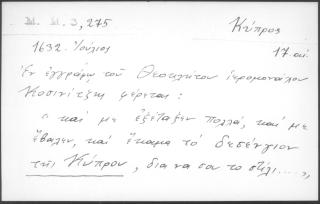 М. М. 3, 275
Κύπρος
1632. Ἰούλιος
17. αἰ.
Ἐν ἐγγράφῳ τοῦ Θεοκλήτου ἱερομονάχου
Κοσινίτζης φέρεται:
"καὶ με ἐξέταξεν πολλά, καὶ με
ἔβαλεν, καὶ ἔκαμα τὸ δεσένγιον
τῆς Κύπρου, δια να σου το στίλι....,